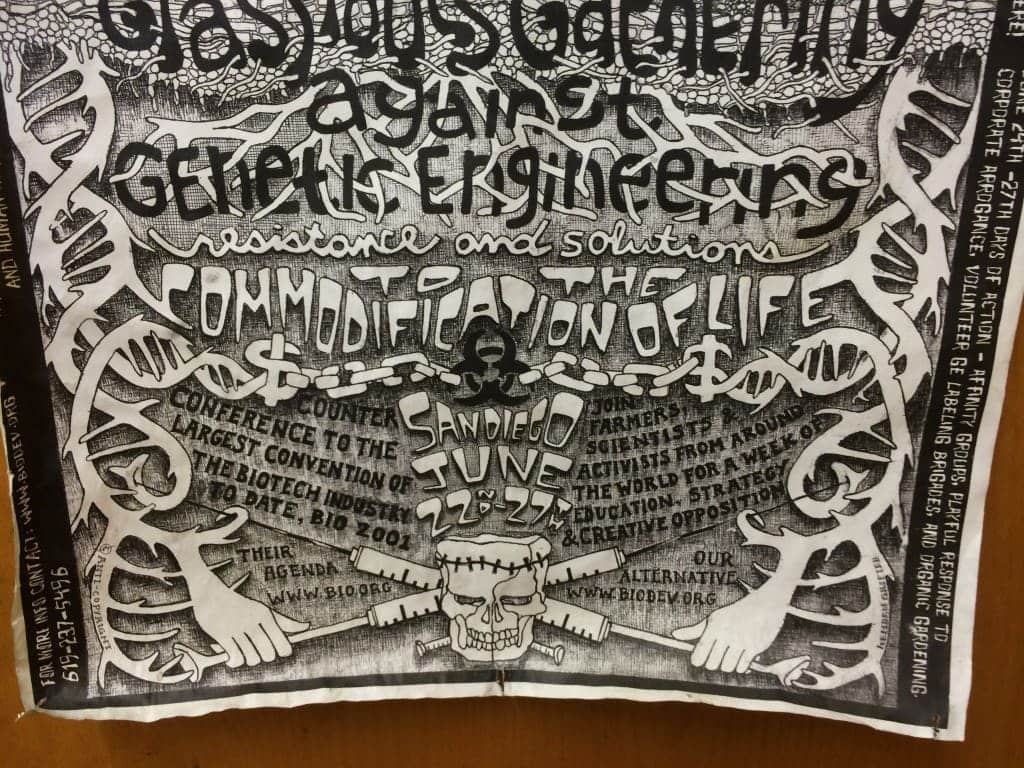 Grassroots Gathering
against
Genetic Engineering
resistance and solutions
TO THE
COMMODIFICATION OF LIFE
$ $
COUNTER
CONFERENCE TO THE
LARGEST CONVENTION OF
THE BIOTECH INDUSTRY
TO DATE, BIO 2001
SAN DIEGO
JUNE
22ND-27TH
JOIN
FARMERS,
SCIENTISTS &
ACTIVISTS FROM AROUND
THE WORLD FOR A WEEK OF
EDUCATION, STRATEGY
& CREATIVE OPPOSITION
THEIR
AGENDA
WWW.BIO.ORG
OUR
ALTERNATIVE
WWW.BIODEV.ORG
AND HUMAN
FOR MORE INFO CONTACT: WWW.BIODEV.ORG
619-237-5496
ANTI-COPYRIGHT
JUNE 24TH-27TH DAYS OF ACTION - AFFINITY GROUPS, PLAYFUL RESPONSE TO
CORPORATE ARROGANCE, VOLUNTEER GE LABELING BRIGADES, AND ORGANIC GARDENING.